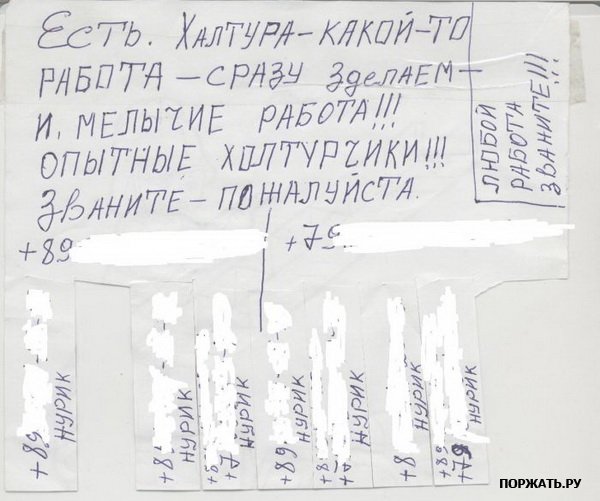 Есть. Халтура-какой-то
работа - сразу зделаем-
и, мелычие работа!!!
опытные холтурчики!!!
Званите - пожалуйста.
любой
работа
званите!!!
+89
+79
+89 Нурик
+8 Нурик
+89 +7 Нурик
+89 Нурик
+8 +7 Нурик
+8 Нурик
+89 +79 Нурик
ПОРЖАТЬ.РУ